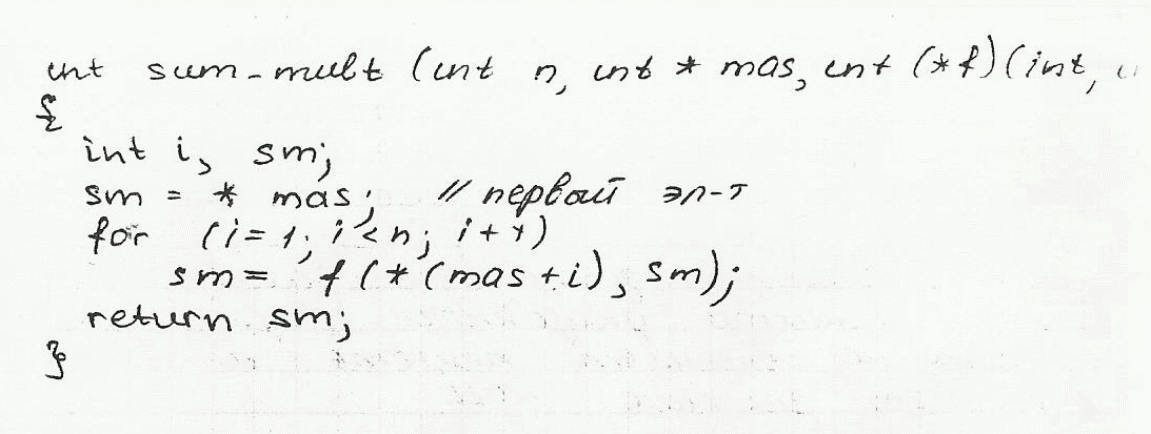 int sum-mult (int n, int * mas, int (*f)(int,
{
int i, sm;
sm = * mas; // первый эл-т
for (i=1; i<n; i++)
sm = f(*(mas+i), sm);
return sm;
}